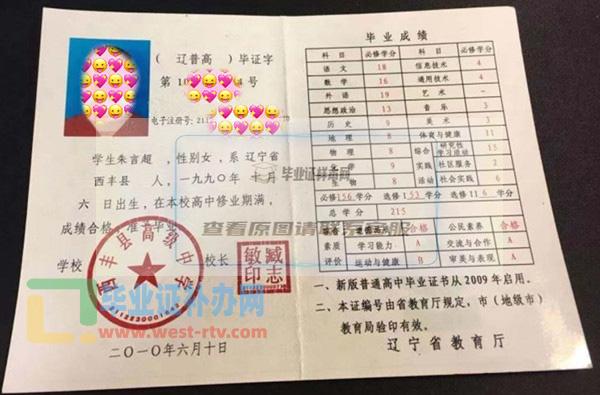 ( 辽普高 ) 毕证字
第 10 4号
电子注册号: 211
学生朱言超 ，性别女，系 辽宁省
西丰县 人，一九九〇年 十月
六 日出生，在本校高中修业期满，
成绩合格，准予毕业。
学校 校长
西丰县高级中学
臧志敏印
二〇一〇年六月十日
毕业成绩
科目 必修学分 科目 必修学分
语文 18 信息技术 4
数学 16 通用技术 4
外语 19 艺术 -
思想政治 13 音乐 3
历史 9 美术 3
地理 8 体育与健康 11
物理 8 综合实践活动 研究性学习活动 15
化学 9 社区服务 2
生物 8 社会实践 6
必修156学分 选修I 53学分 选修II 6学分
总学分 215
综合素质评价 道德品质 合格 公民素养 合格
学习能力 A 交流与合作 A
运动与健康 B 审美与表现 A
一、新版普通高中毕业证书从2009年启用。
二、本证编号由省教育厅规定，市（地级市）
教育局验印有效。
辽宁省教育厅
毕业证补办网
查看原图请联系客服
毕业证补办网
www.west-rtv.com